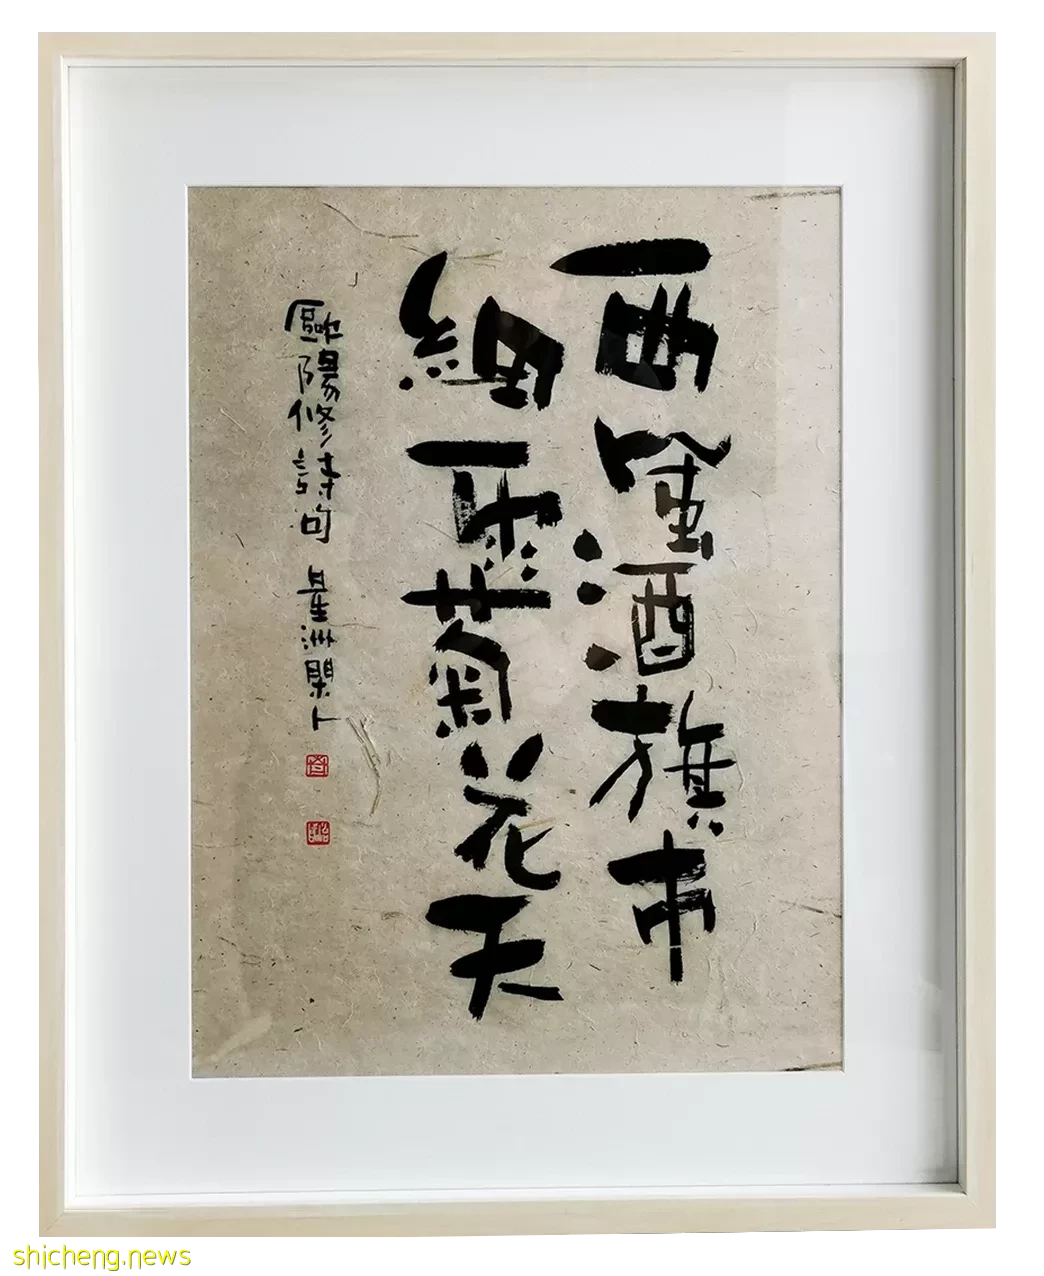 西風酒旗市
細雨菊花天
歐陽修詩句 星洲閑
shicheng.news